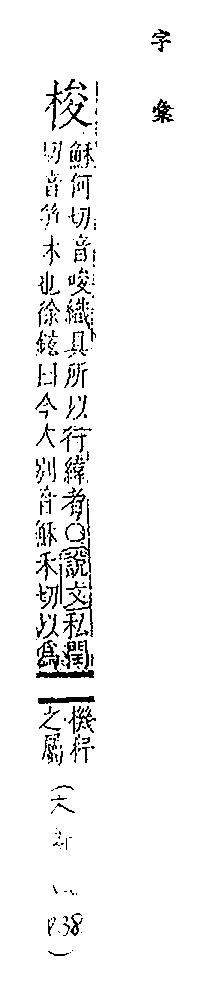 字彙
梭
穌何切音唆織具所以行緯者○說文私閏
切音笋木也徐鉉曰今人別音穌禾切以爲
機杼
之屬
(大新 P.38)